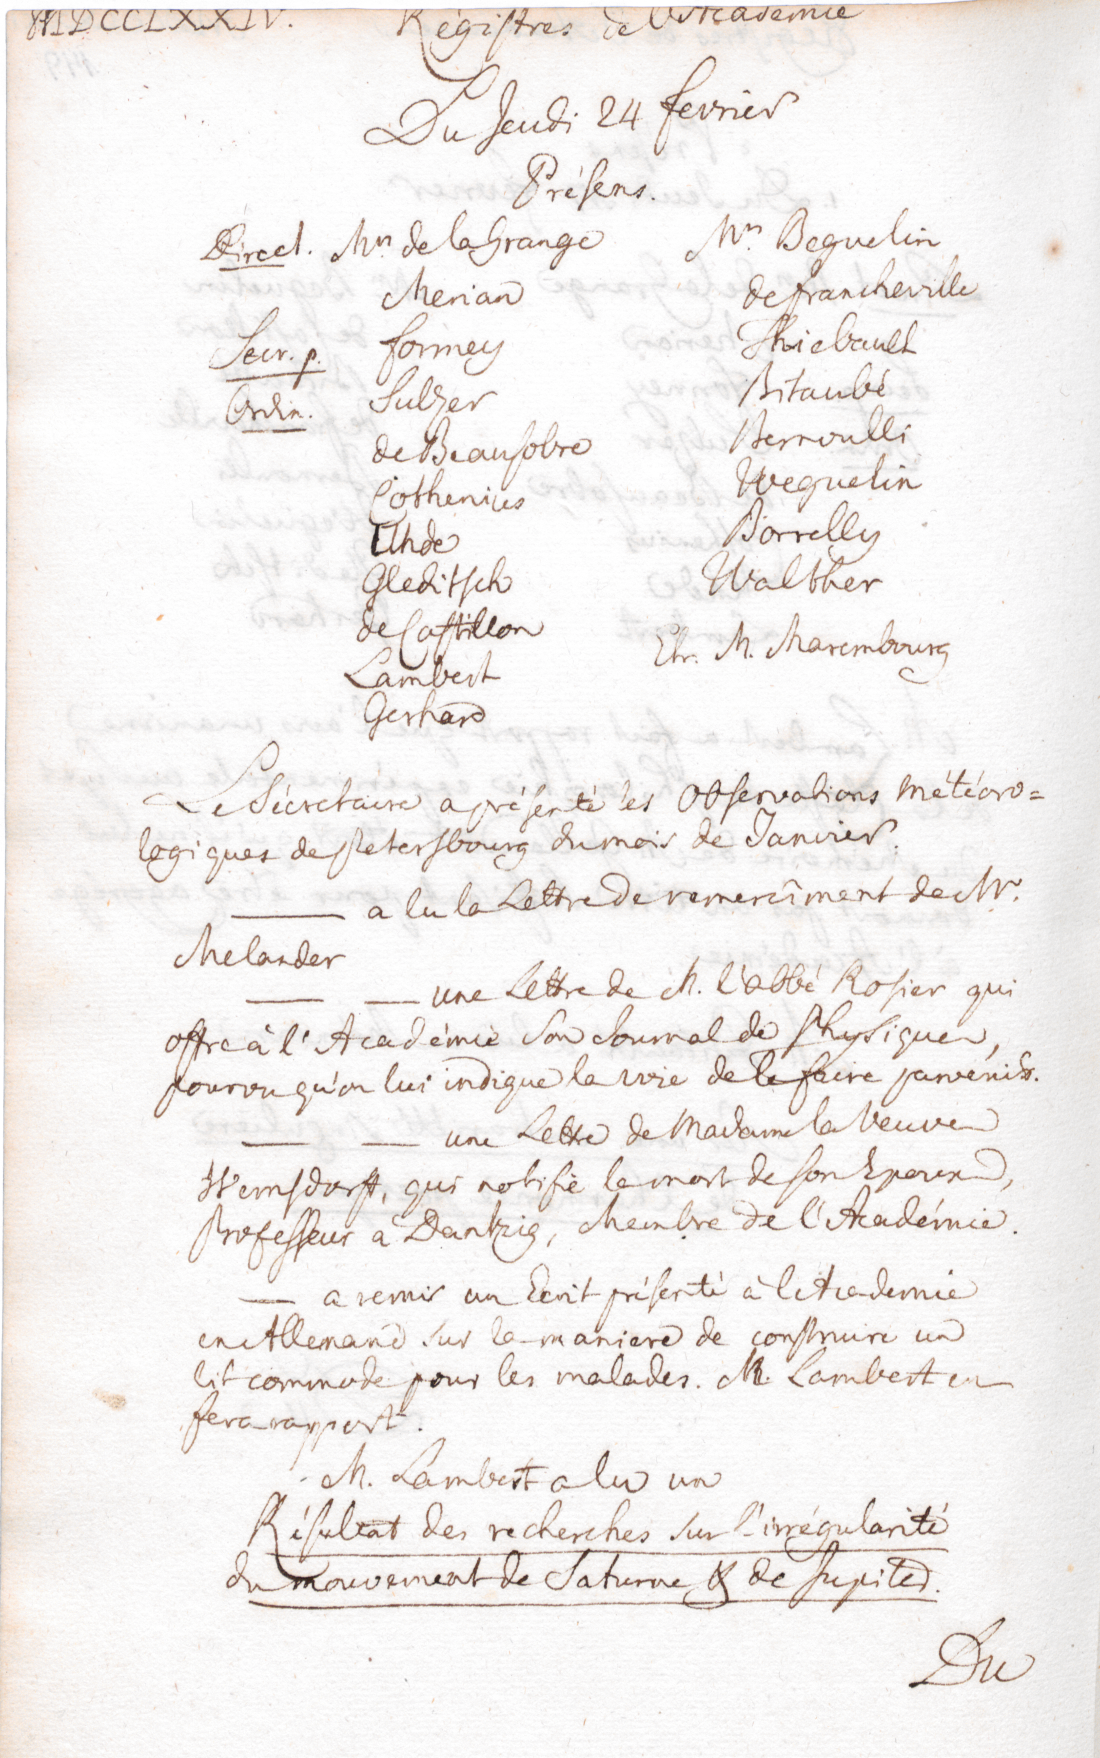 MDCCLXXIV. Régistres de l'Academie
Du Jeudi 24 fevrier
Présens.
Direct. Mrs. de la Grange
Merian
Secr. p. formey
Ordin. Sulzer
de Beausobre
Cothenius
Uhde
Gleditsch
de Castillon
Lambert
Gerhard
Mrs. Beguelin
de francheville
Thiebault
Bitaubé
Bernoulli
Weguelin
Borrelly
Walther
Etr. M. Marembourg
Le Sécretaire a présenté les Observations météoro=
logiques de Petersbourg du mois de Janvier.
——— a lu la Lettre de remercîment de Mr.
Melander
—— —— une Lettre de M. l'abbé Rosier qui
offre à l'Académie son Journal de Physique,
pourvu qu'on lui indique la voie de le faire parvenir.
—— —— une Lettre de Madame la Veuve
Wernsdorff, qui notifie la mort de son Epoux,
Professeur à Dantzig, Membre de l'Académie.
—— a remis un Ecrit présenté à l'Academie
en Allemand sur la maniere de construire un
lit commode pour les malades. M. Lambert en
fera rapport.
M. Lambert a lu un
Résultat des recherches sur l'irrégularité
du mouvement de Saturne & de Jupiter.
Du